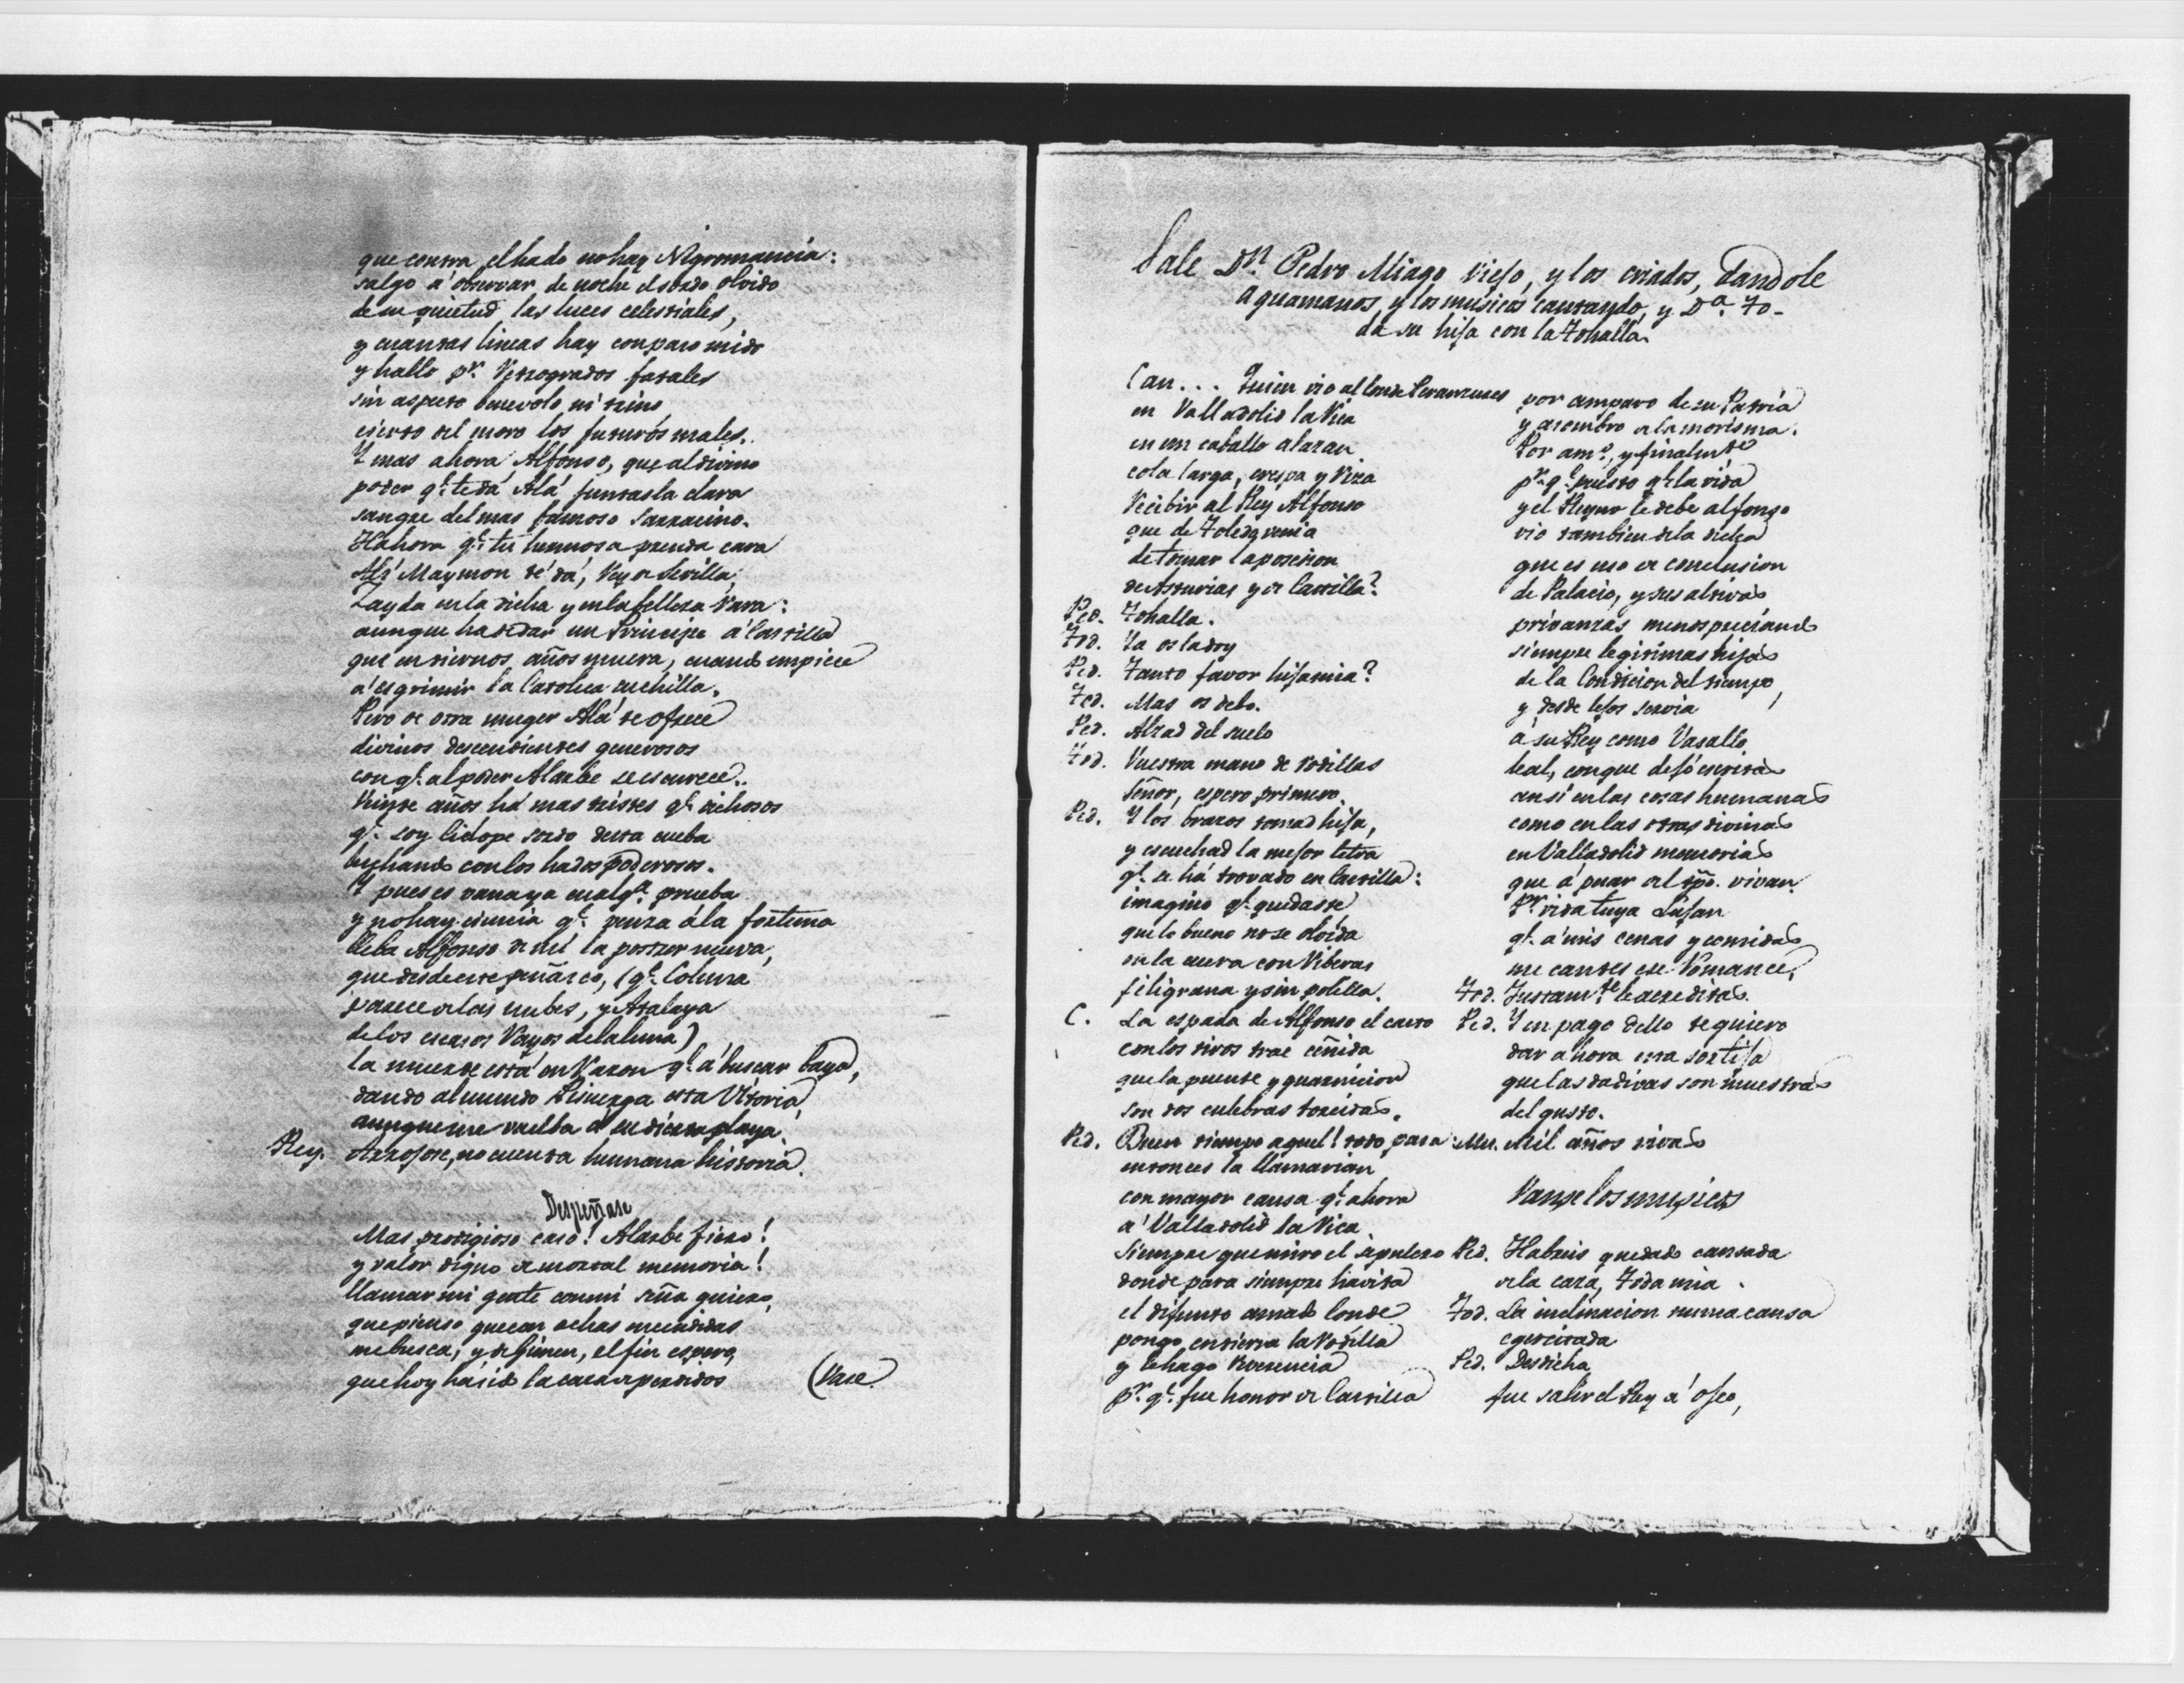 que contra el hado no hay Nigromancia:
salgo á observar de noche el dado olvido
de su quietud las luces celestiales,
y cuantas lineas hay comparo mido
y hallo pr. Retrogrados fatales
sin aspecto benevolo, ni trino
cierto del moro los futuros males.
Y mas ahora Alfonso, que al divino
poder qe. te dá Alá juntas la clara
sangre del mas famoso Sarracino.
Y ahora qe. tu hermosa prenda cara
Alí Maymon te dá, Rey de Sevilla,
Zayda en la dicha y en la belleza rara:
aunque ha de dar un Principe á Castilla
que en tiernos años muera, cuando empiece
á esgrimir la Catolica cuchilla.
Pero de otra muger Alá te ofrece
divinos descendientes generosos
con qe. al poder Alarbe se escurece..
Veinte años há mas tristes qe. dichosos
qe. soy Ciclope sordo desta cueba
luchando con los hados poderosos.
Y pues es vana ya cualqa. prueba
y no hay ciencia qe. venza á la fortuna
lleba Alfonso de mi la postrer nueva,
que desde este peñasco, (qe. Coluna
parece de las nubes, y Atalaya
de los escasos Rayos de la luna)
la muerte está en Razon qe. á buscar baya,
dando al mundo Pisuerga esta Vitoria,
aunque me vuelba á su dicosa playa.
Rey. Arrojose, no cuenta humana historia
Despeñase
Mas prodigioso caso! Alarbe fiero!
y valor digno de mortal memoria!
llamar mi gente con mi seña quiero,
que pienso que con achas encendidas
me busca, y de Jimen, el fin espero,
que hoy há sido la caza de perdidos (Vase.
Sale Dn. Pedro Miago viejo, y los criados, dandole
aguamanos, y los musicos cantando, y Da. To-
da su hija con la Tohalla.
Can... Quien vio al Conde Peranzures
en Valladolid la Rica
en un caballo alazan
cola larga, crespa y Riza
Recibir al Rey Alfonso
que de Toledo venia
de tomar la posesion
de Asturias y de Castilla?
Ped. Tohalla.
Tod. Ya os la doy
Ped. Tanto favor hija mia?
Tod. Mas os debo.
Ped. Alzad del suelo
Tod. Vuestra mano de rodillas
Señor, espero primero.
Ped. Y los brazos tomad hija,
y escuchad la mejor letra
qe. se há trovado en Castilla:
imagino qe. quedasse
que lo bueno no se olvida
en la cuera con Riberas
filigrana y sin polilla.
C. La espada de Alfonso el casto
con los tiros trae ceñida
que la puente y guarnicion
son dos culebras torcidas.
Ped. Buen tiempo aquel! todo pasa
entonces la llamarian
con mayor causa qe. ahora
á Valladolid la Rica
Siempre que miro el sepulcro
donde para siempre habita
el difunto amado Conde
pongo en tierra la Rodilla
y le hago Reverencia
pr. qe. fue honor de Castilla
por amparo de su Patria
y asombro de la morisma.
Por amo, y finalmte
pr. qe. puesto qe. la vida
y el Reyno le debe alfonso
vio tambien de la dicha
que es uso de conclusion
de Palacio, y sus altivas
privanzas menospreciando
siempre legitimas hijas
de la Condicion del tiempo,
y desde lejos servia
á su Rey como Vasallo
leal, con que dejó escritas
ansi en las cosas humanas
como en las otras divinas
en Valladolid memorias
que á pesar del tpo. vivan.
Pr. vida tuya Lujan
qe. á mis cenas y comidas
me cantes ese Romance,
Tod. Justamte. le acreditas.
Ped. Y en pago dello te quiero
dar ahora esta sortija
que las dadivas son muestras
del gusto.
Mu. Mil años vivas
Vanse los musicos
Ped. Habreis quedado cansada
de la caza, Toda mia.
Tod. La inclinacion nunca cansa
egercitada
Ped. Desdicha
fue salir el Rey á ojeo,